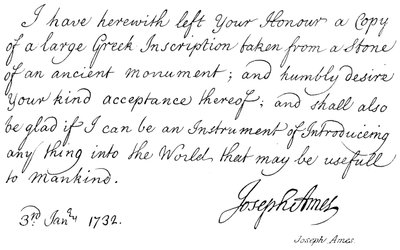 I have herewith left Your Honour a Copy
of a large Greek Inscription taken from a Stone
of an ancient monument; and humbly desire
Your kind acceptance thereof; and shall also
be glad if I can be an Instrument of Introduceing
any thing into the World that may be usefull
to Mankind.
Joseph Ames
3rd Janry 1732.
Joseph Ames.